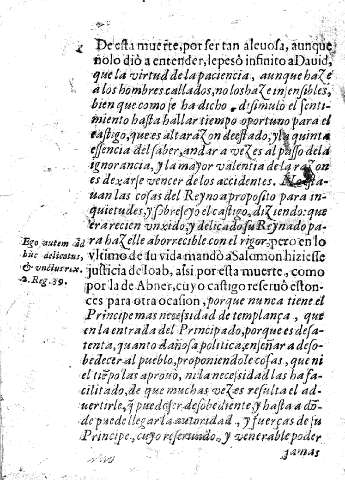 De esta muerte, por ser tan alevosa, aunque
nolo diò a entender, le pesò infinito a Dauid,
que la virtud de la paciencia, aunque haze
a los hombres callados, no los haze insensibles,
bien que como se ha dicho disimulo el senti-
miento hasta hallar tiempo oportuno para el
castigo, que es alta razon de estado, y la quinta
essencia del saber, andar a vezes al passo de la
ignorancia, y la mayor valentia de la razon
es dexarse vencer de los accidentes.
uan las cosas del Reyno a proposito para in-
quietudes, y sobreseyo el castigo, diziendo: que
era recien vnxido, y delicado su Reynado pa-
ra hazelle aborrecible con el rigor, pero en lo
vltimo de su vida mandò a Salomon hiziesse
justicia de Ioab, assi por esta muerte, como
por la de Abner, cuyo castigo reseruò eston-
ces para otra ocasion, porque nunca tiene el
Principe mas necessidad de templança, que
en la entrada del Principado, porque es desa-
tenta, quanto dañosa politica, enseñar a deso-
bedecer al pueblo, proponiendole cosas, que ni
el tiẽpo las aprouò, ni la necessidad las ha fa-
cilitado, de que muchas vezes resulta el ad-
uertirle, q̃ puede ser desobediente, y hasta a dõ-
de puede llegar la autoridad, y fuerças de su
Principe, cuyo reseruado, y venerable poder
jamas
Ego autem ad
huc delicatus,
& vnctus rex.
2. Reg. 39.